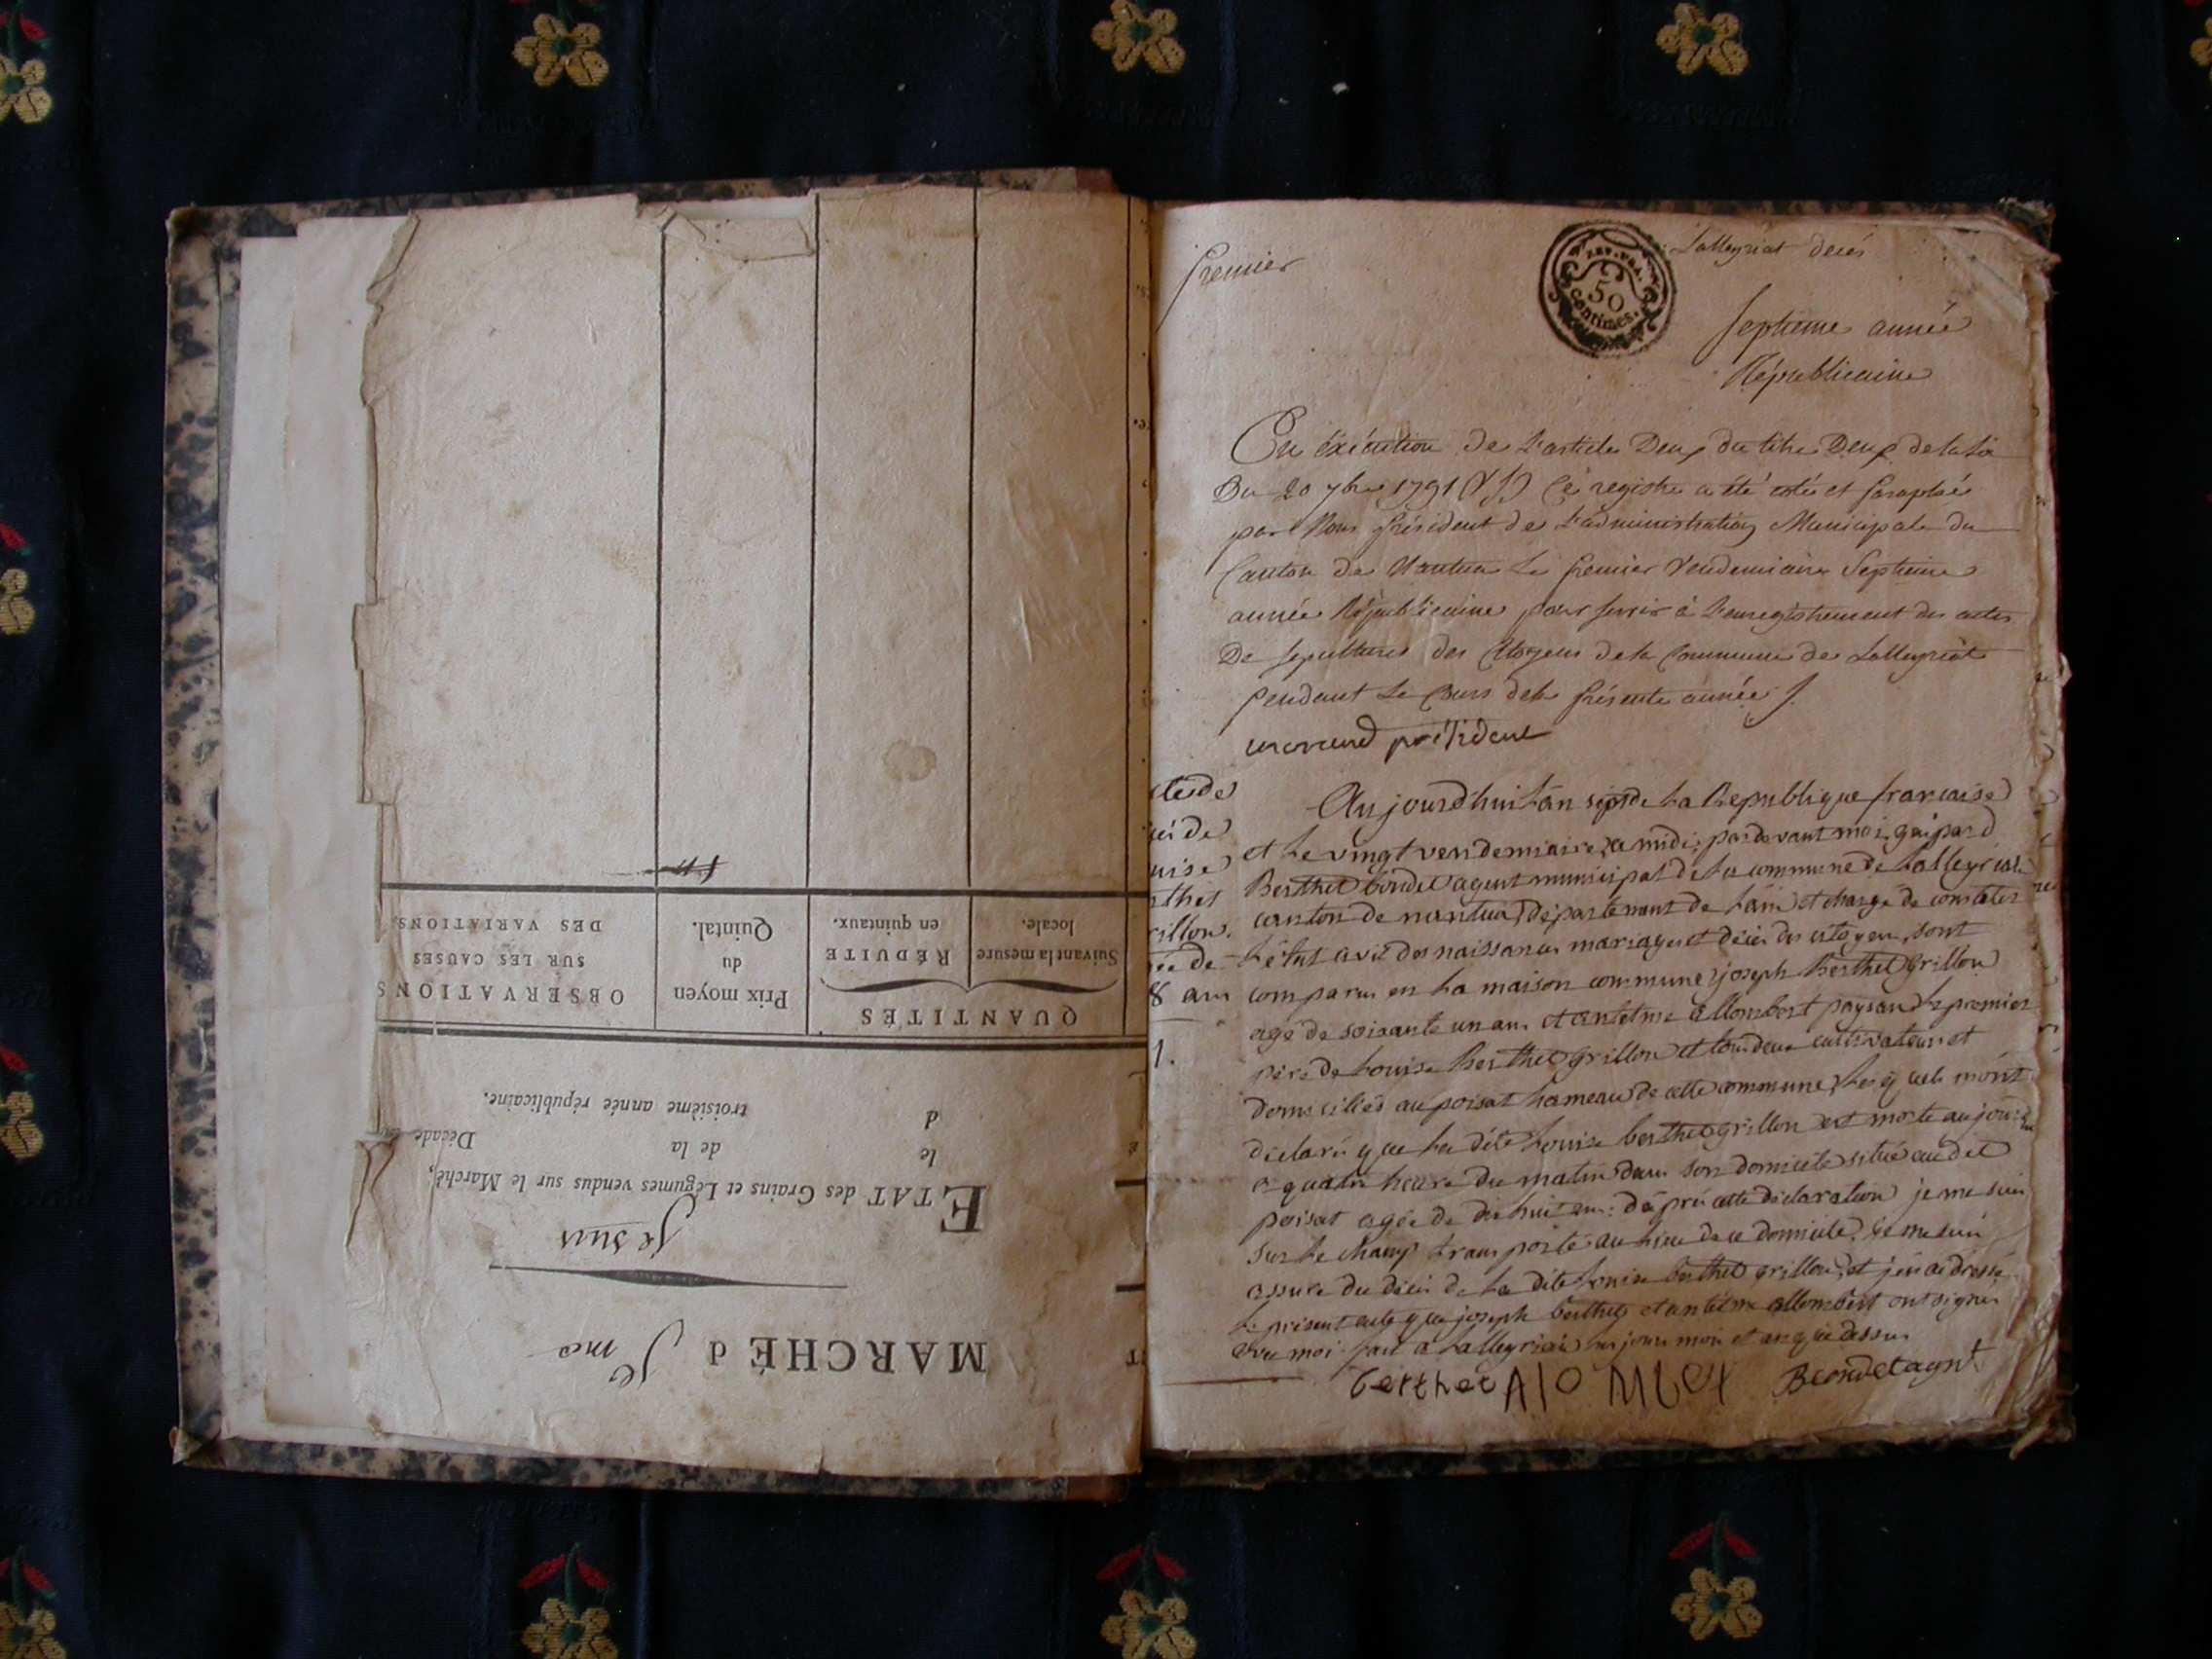 MARCHÉ d
ETAT des Grains et Légumes vendus sur le Marché,
le de la Décade
d troisième année républicaine.
QUANTITÉS
Suivant la mesure
locale.
RÉDUITE
en quintaux.
Prix moyen
du
Quintal.
OBSERVATIONS
SUR LES CAUSES
DES VARIATIONS.
premier
REP. FRA.
50
centimes.
Lalleyriat decés
Septieme année
Républicaine
En éxécution de l'article Deux du titre Deux de la Loi
Du 20 7bre 1791 (VS) Cé registre a été coté et paraphé
par Nous président de l'administration Municipale du
Canton de Nantua Le premier Vendemiaire Septieme
année Républicaine pour servir à l'enregistrement des actes
De sepultures des Citoyens de la Commune de Lalleyriat
pendant Le Cours de la présente année
président
Aujourd'hui l'an sept de la Republique francaise
et le vingt vendemiaire a midi, pardevant moi gaspard
Berthet bondet agent municipal de la commune de Lalleyriat
canton de nantua département de l'ain et chargé de constater
l'état civil des naissances mariages et décés des citoyens, sont
comparus en la maison commune joseph Berthet Grillon
agé de soixante un ans et antelme allombert paysan le premier
pere de Louise Berthet grillon et tous deux cultivateurs et
domiciliés au poisat hameau de cette commune, lesquels m'ont
déclaré que la dite Louise berthet grillon est morte aujourd'hui
a quatre heure du matin dans son domicile situé au dit
poisat agée de dix huit ans: d'aprés cette déclaration je me suis
sur le champ transporté au lieu de ce domicile, je me suis
assuré du décés de la dite Louise berthet grillon, et j'en ai dressé
le présent acte que joseph berthet et antelme allombert ont signés
avec moi fait a Lalleyriat les jours mois et an que dessus
berthet Bondet agnt
cte de
cés de
uise
rthet
rillon.
ée de
8 ans
1.